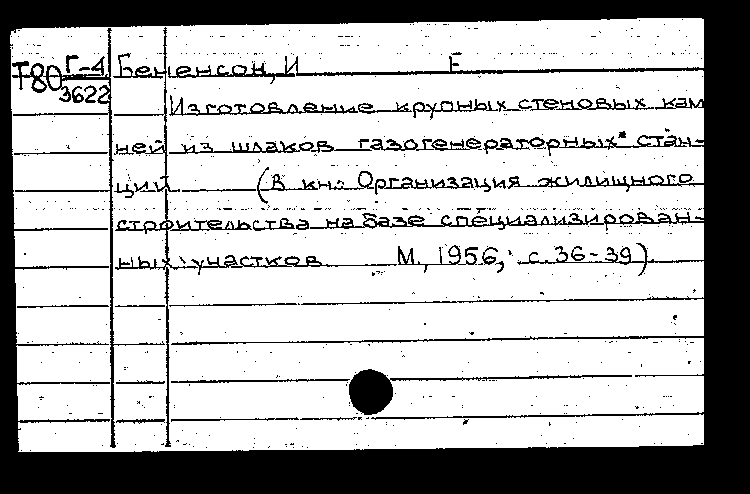 Т80 Г-4 Бененсон, И Е
3622
Изготовление крупных стеновых кам
ней из шлаков газогенераторных стан-
ций (В кн.: Организация жилищного
строительства на базе специализирован-
ных участков М., 1956, с. 36-39)